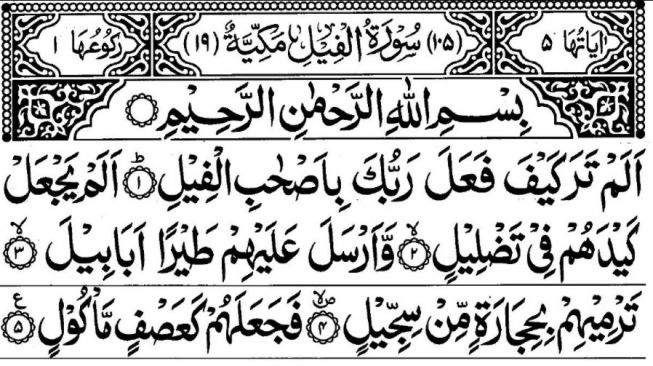 اٰيَاتُهَا ٥ (١٠٥) سُوْرَةُ الْفِيْلِ مَكِّيَّةٌ (١٩) رُكُوْعُهَا ١
بِسْمِ اللّٰهِ الرَّحْمٰنِ الرَّحِيْمِ
اَلَمْ تَرَ كَيْفَ فَعَلَ رَبُّكَ بِاَصْحٰبِ الْفِيْلِ ؕ﴿١﴾ اَلَمْ يَجْعَلْ
كَيْدَهُمْ فِيْ تَضْلِيْلٍ ۙ﴿٢﴾ وَّاَرْسَلَ عَلَيْهِمْ طَيْرًا اَبَابِيْلَ ۙ﴿٣﴾
تَرْمِيْهِمْ بِحِجَارَةٍ مِّنْ سِجِّيْلٍ ۪ۙ﴿٤﴾ فَجَعَلَهُمْ كَعَصْفٍ مَّاْكُوْلٍ ﴿٥﴾ ع